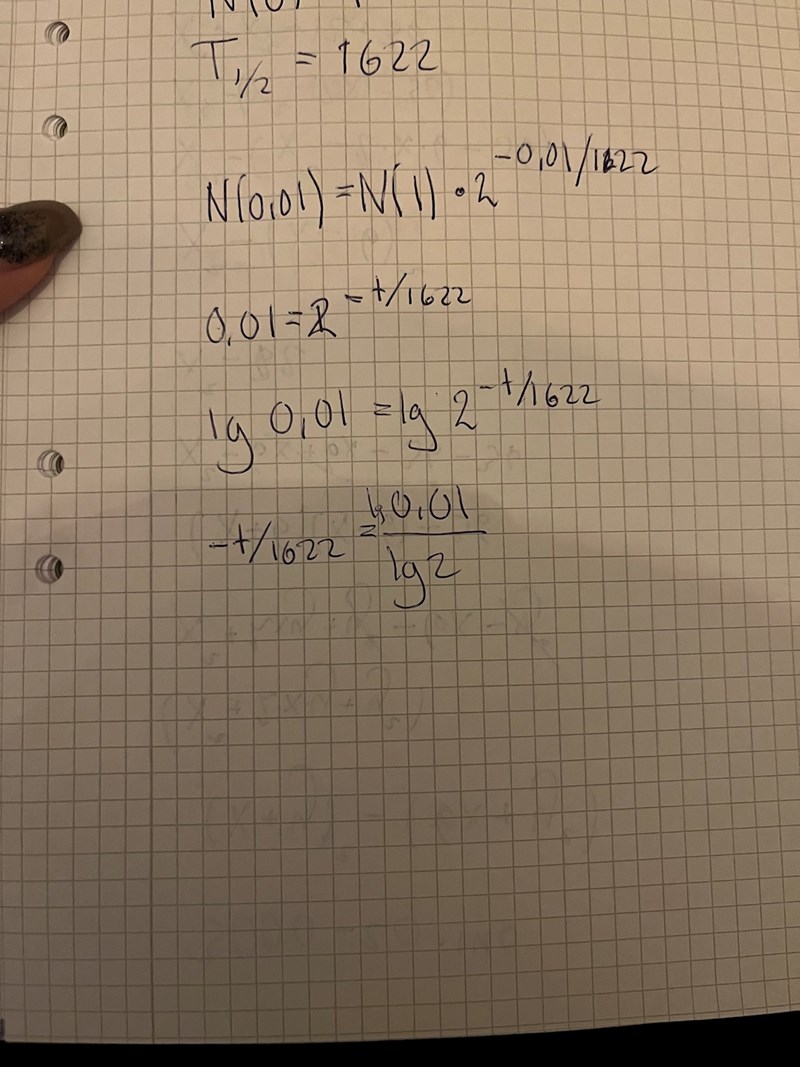 N(0)
T1/2 = 1622
N(0,01) = N(1) · 2^-0,01/1622
0,01 = 2^-t/1622
lg 0,01 = lg 2^-t/1622
-t/1622 = lg 0,01 / lg 2